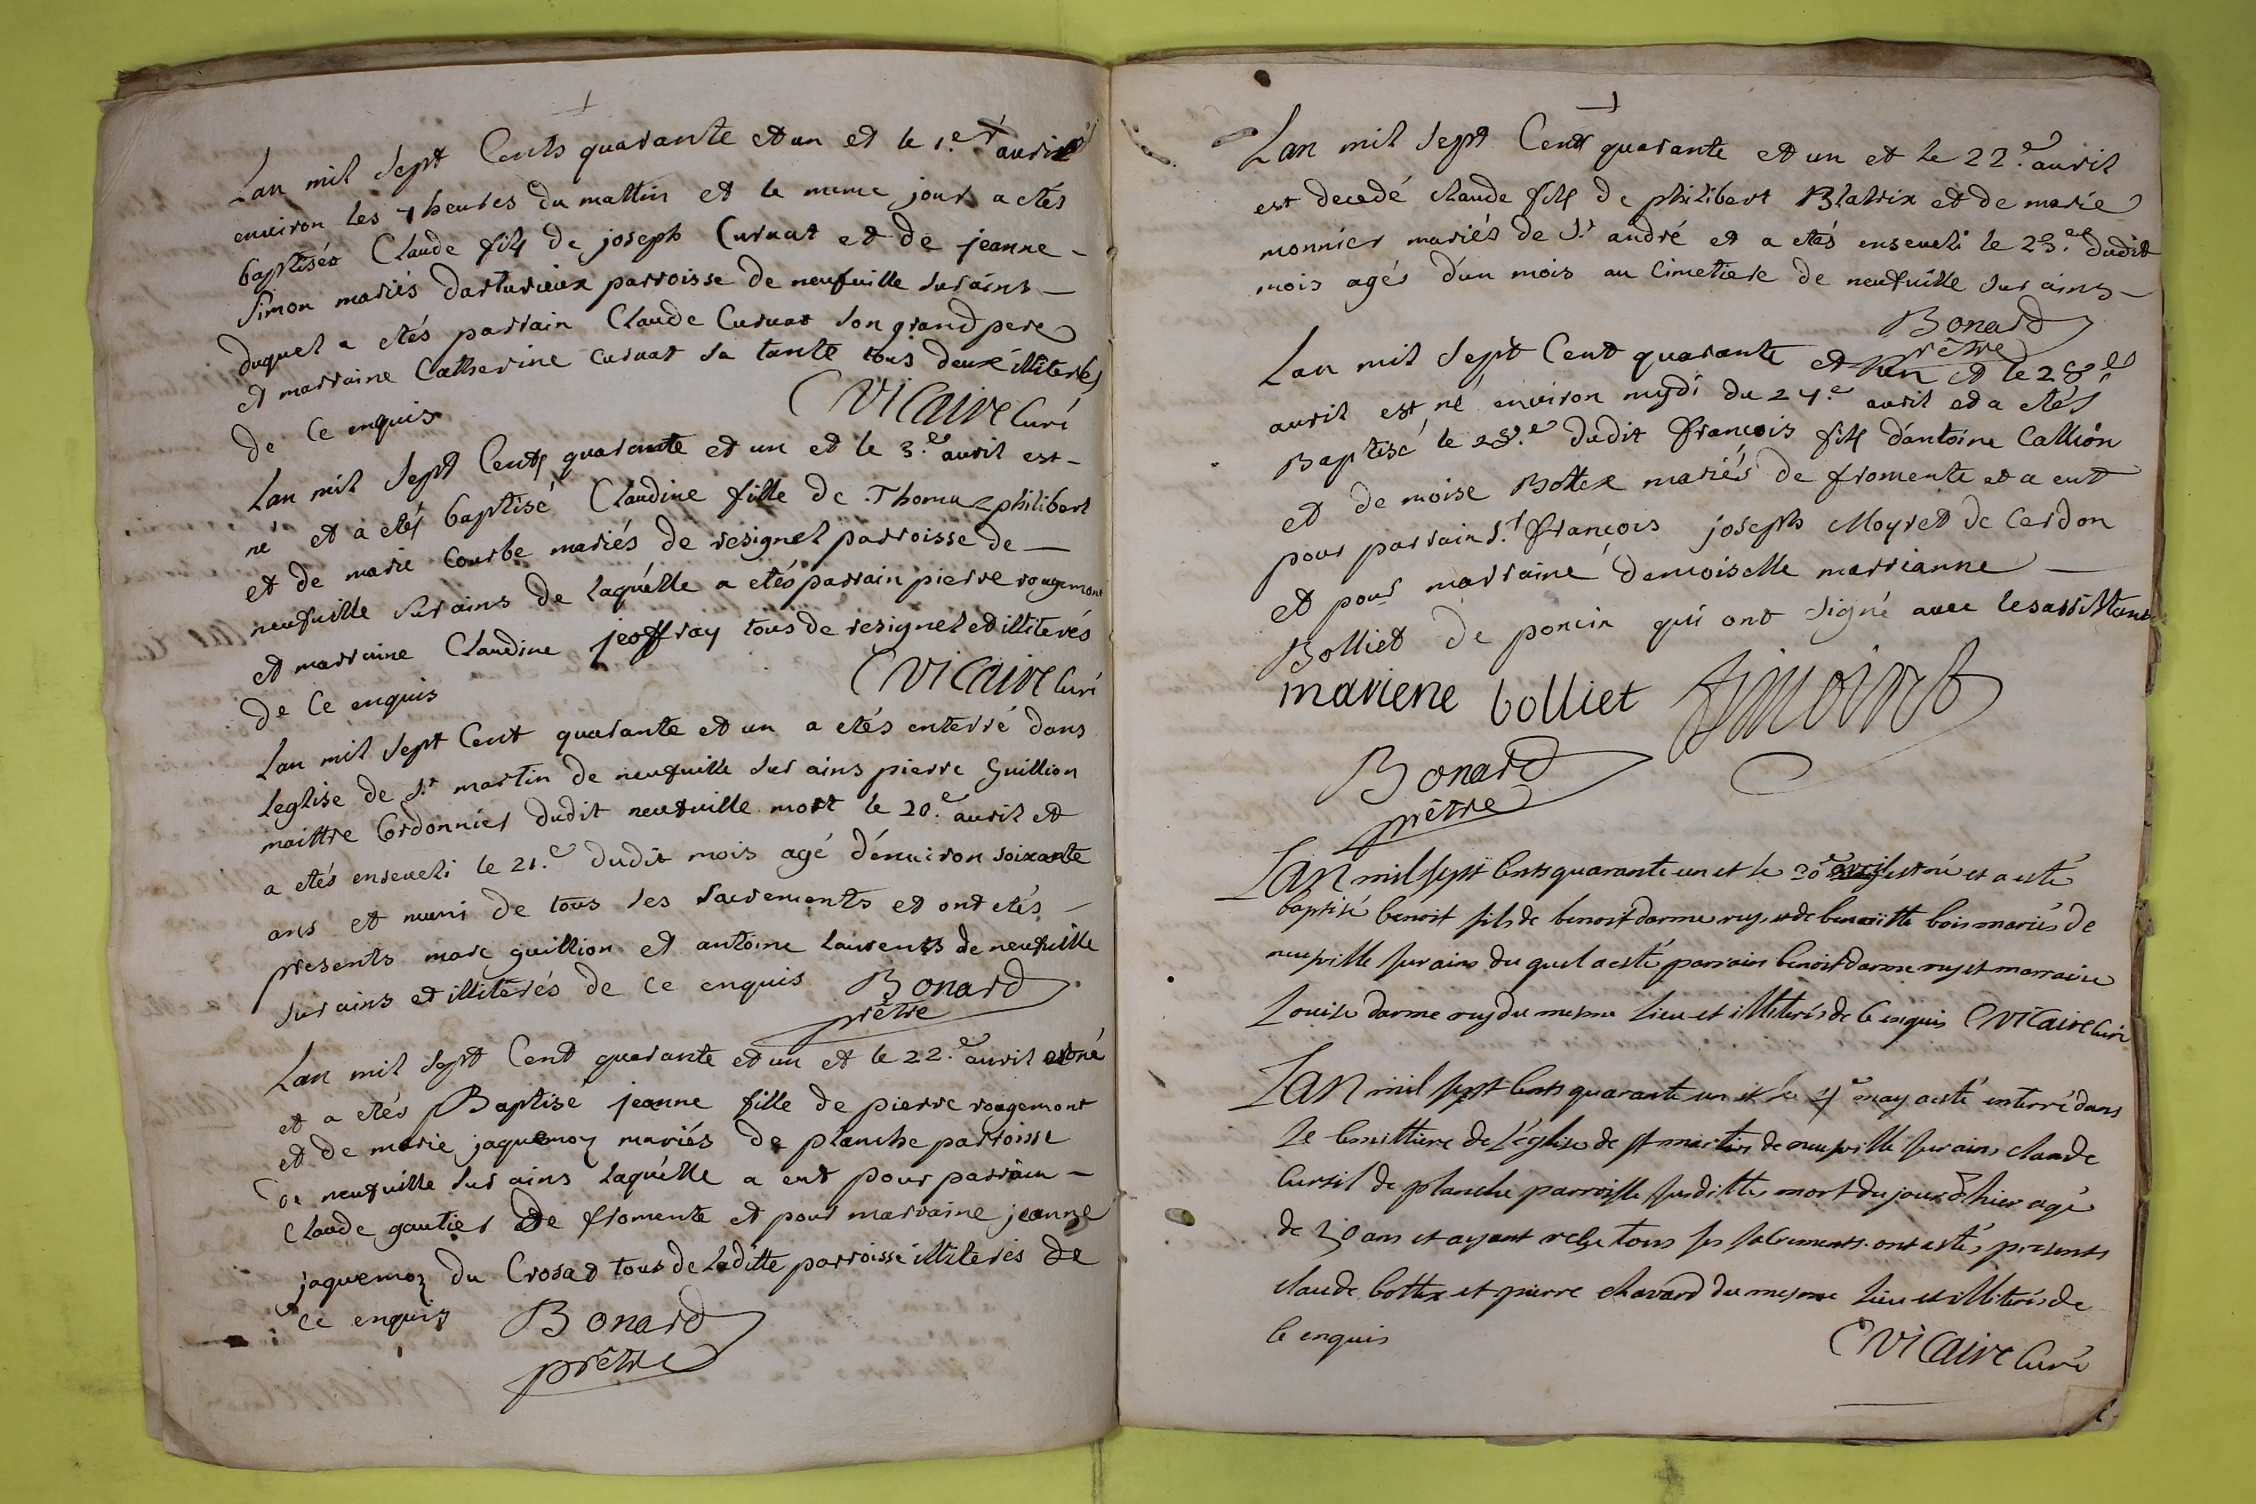 Lan mil sept Cents quarante et un et le 1.er avril
environ les 7 heures du mattin et le meme jour a etés
baptisés Claude fils de joseph Curvat et de jeanne -
Simon mariés darturieux parroisse de neufville sur ains -
duquel a etés parrain Claude Curvat son grand pere
et marraine Catherine curvat sa tante tous deux illiterés
de ce enquis
Vicaire Curé
Lan mil sept Cents quarante et un et le 3.e avril est -
né et a etés baptisé Claudine fille de Thomas philibert
et de marie Courbe mariés de resignel parroisse de -
neufville sur ains de laquélle a etés parrain pierre rougemont
et marraine Claudine jeoffray tous de resignel et illiterés
de ce enquis
Vicaire Curé
Lan mil sept Cent quarante et un a etés enterré dans
Leglise de St martin de neufville sur ains pierre Guillion
maittre Cordonnier dudit neufville mort le 20.e avril et
a etés enseveli le 21.e dudit mois agé d'environ soixante
ans et muni de tous ses sacrements et ont etés -
presents marc guillion et antoine Laurents de neufville
sur ains et illitérés de ce enquis Bonard
prêtre
Lan mil sept Cent quarante et un et le 22.e avril est né
et a etés Baptisé jeanne fille de pierre rougemont
et de marie jaquemoz mariés de planche parroisse
de neufville sur ains laquélle a eut pour parrain -
Claude gautier de fromente et pour marraine jeanne
jaquemoz du Crosat tous de laditte parroisse illiterés de
ce enquis Bonard
prêtre
Lan mil sept Cent quarante et un et le 22.e avril
est decedé claude fils de philibert Blatrix et de marie
monnier mariés de St andré et a etés enseveli le 23.e dudit
mois agés d'un mois au Cimetiere de neufville sur ains -
Bonard
prêtre
Lan mil sept Cent quarante et un et le 28.e
avril est né environ mydi du 24.e avril et a etés
Baptisé le 28.e dudit françois fils d'antoine Callion
et de moise Bottex mariés de fromente et a eut
pour parrain Sr françois joseph Moyret de Cerdon
et pour marraine demoiselle marrianne -
Bolliet de poncin qui ont signé avec les assistans
mariene bolliet
Bonard
prêtre
Lan mil sept Cents quarante un et le 30e avril est né et a esté
baptisé benoit fils de benoit darmeruy et de benoitte bois mariés de
neufville sur ains du quel a esté parrain benoit darmeruy et marraine
Louise darmeruy du mesme Lieu et illiterés de Ce enquis Vicaire Curé
Lan mil sept Cents quarante un et le 4e may a esté enterré dans
Le Cimittiere de L'église de st martin de neufville sur ains claude
Curtil de planche parroisse susditte mort du jour d'hier agé
de 30 ans et ayant reçu tous ses sacrements. ont estés presents
claude bottex et pierre chavard du mesme Lieu et illiterés de
Ce enquis
Vicaire Curé